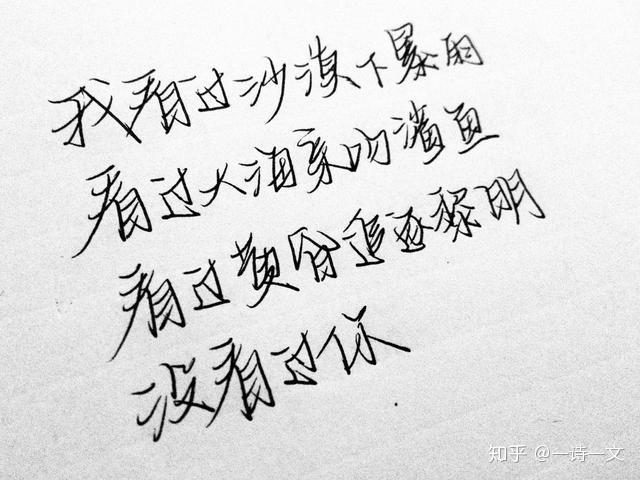 我看过沙漠下暴雨
看过大海亲吻鲨鱼
看过黄昏追逐黎明
没看过你
知乎 @一诗一文